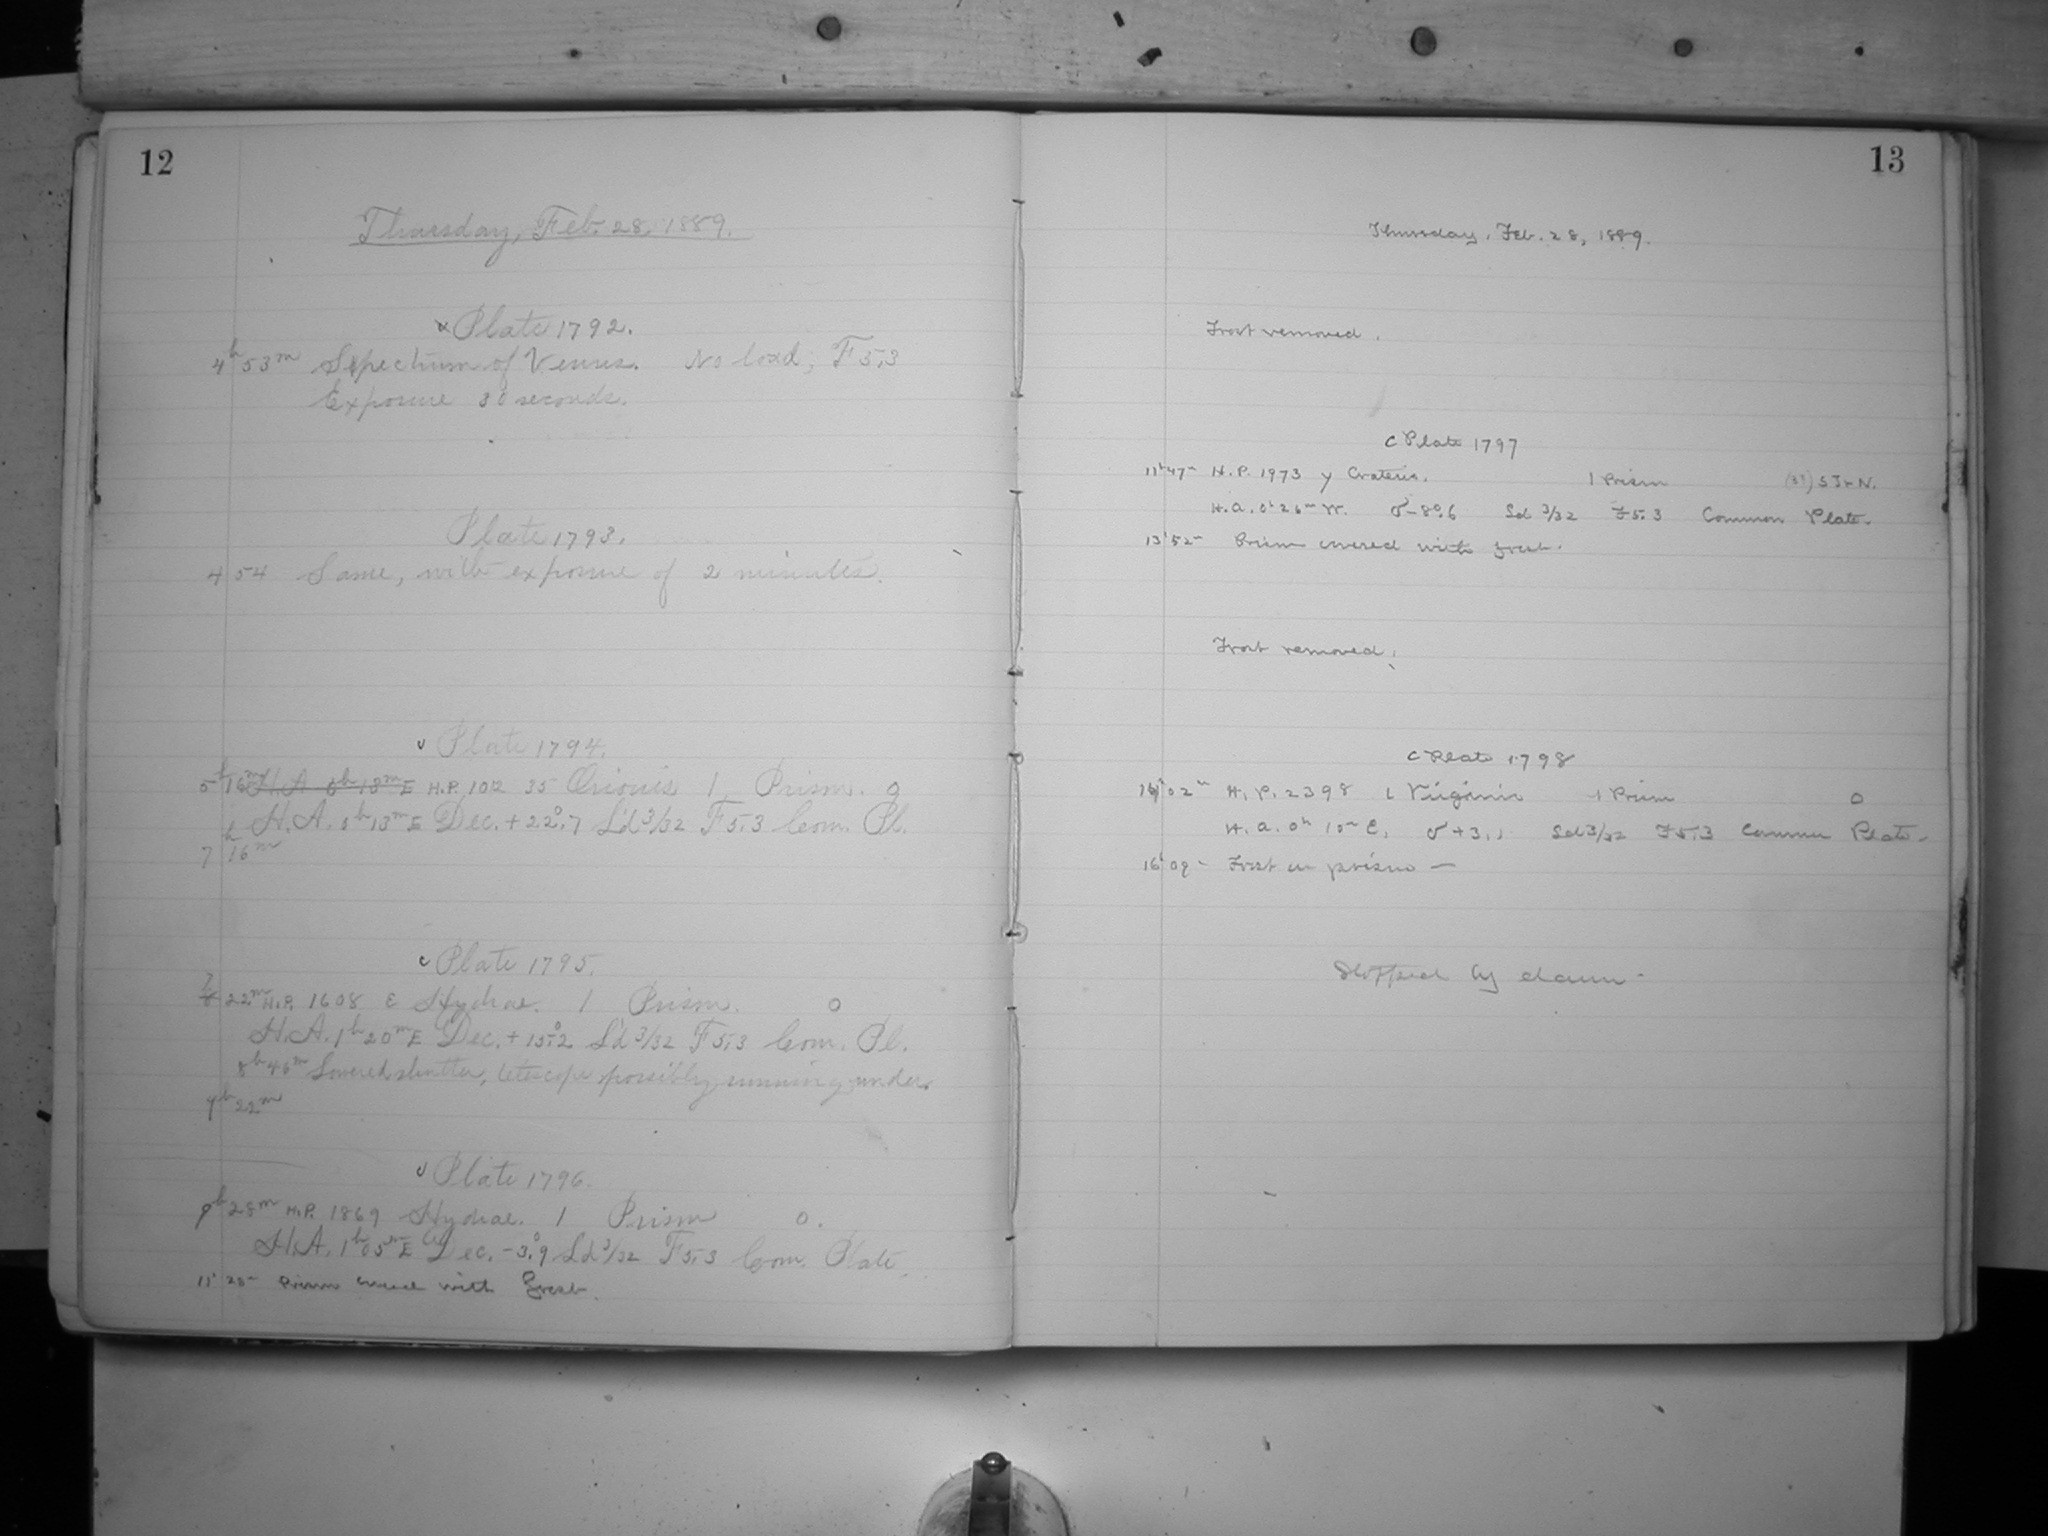 12
Thursday, Feb. 28, 1889.
Plate 1792.
4h 53m Spectrum of Venus. No load, F 5.3
Exposure 30 seconds.
Plate 1793.
4 54 Same, with exposure of 2 minutes.
Plate 1794.
5h 16m H.A. 0h 13m E H.P. 1012 35 Orionis 1 Prism. 0
H.A. 0h 13m E Dec. + 22°.7 L'd 3/32 F 5.3 Com. Pl.
7h 16m
c Plate 1795.
7 22m H.P. 1608 ε Hydrae. 1 Prism. 0
H.A. 1h 20m E Dec. + 15°.2 L'd 3/32 F 5.3 Com. Pl.
8h 46m Lowered shutter, telescope possibly running under.
9h 22m
Plate 1796.
9h 28m H.P. 1869 Hydrae. 1 Prism 0.
H.A. 1h 05m E Dec. - 3°.9 L'd 3/32 F 5.3 Com. Plate.
11h 28m Prism covered with frost.
13
Thursday, Feb. 28, 1889.
Frost removed.
c Plate 1797
11h 47m H.P. 1973 γ Crateris. 1 Prism S Tr N.
H.A. 0h 26m W. δ - 8°.6 Ld 3/32 F 5.3 Common Plate.
13h 52m Prism covered with frost.
Frost removed.
c Plate 1798
14h 02m H.P. 2398 ι Virginis 1 Prism 0
H.A. 0h 10m E. δ + 3. Ld 3/32 F 5.3 Common Plate.
16h 09m Frost on prism —
Stopped by dawn.